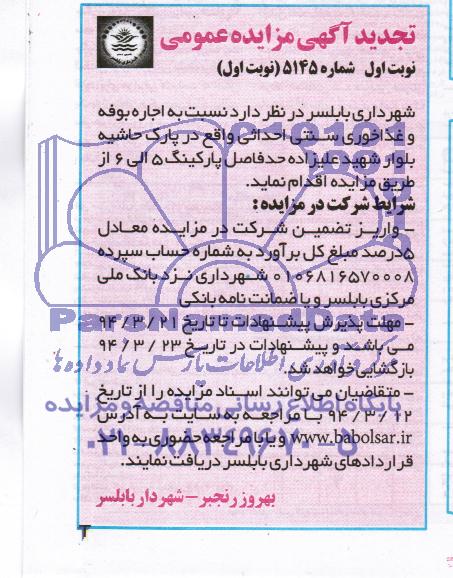 تجدید آگهی مزایده عمومی
نوبت اول شماره ۵۱۴۵ (نوبت اول)
شهرداری بابلسر در نظر دارد نسبت به اجاره بوفه
و غذاخوری سنتی احداثی واقع در پارک حاشیه
بلوار شهید علیزاده حدفاصل پارکینگ ۵ الی ۶ از
طریق مزایده اقدام نماید.
شرایط شرکت در مزایده :
– واریز تضمین شرکت در مزایده معادل
۵درصد مبلغ کل برآورد به شماره حساب سپرده
۰۱۰۶۸۱۶۵۷۰۰۰۸ شهرداری نزد بانک ملی
مرکزی بابلسر و یا ضمانت نامه بانکی
– مهلت پذیرش پیشنهادات تا تاریخ ۹۴/۳/۲۱
می باشد و پیشنهادات در تاریخ ۹۴/۳/۲۳
بازگشایی خواهد شد.
– متقاضیان می توانند اسناد مزایده را از تاریخ
۹۴/۳/۱۲ با مراجعه به سایت به آدرس
www.babolsar.ir و یا با مراجعه حضوری به واحد
قراردادهای شهرداری بابلسر دریافت نمایند.
بهروز رنجبر – شهردار بابلسر
ParsNamadData
فن آوری اطلاعات پارس نماد داده ها
پایگاه اطلاع رسانی مناقصه و مزایده
۰۲۱-۸۸۳۴۹۶۷۰-۵